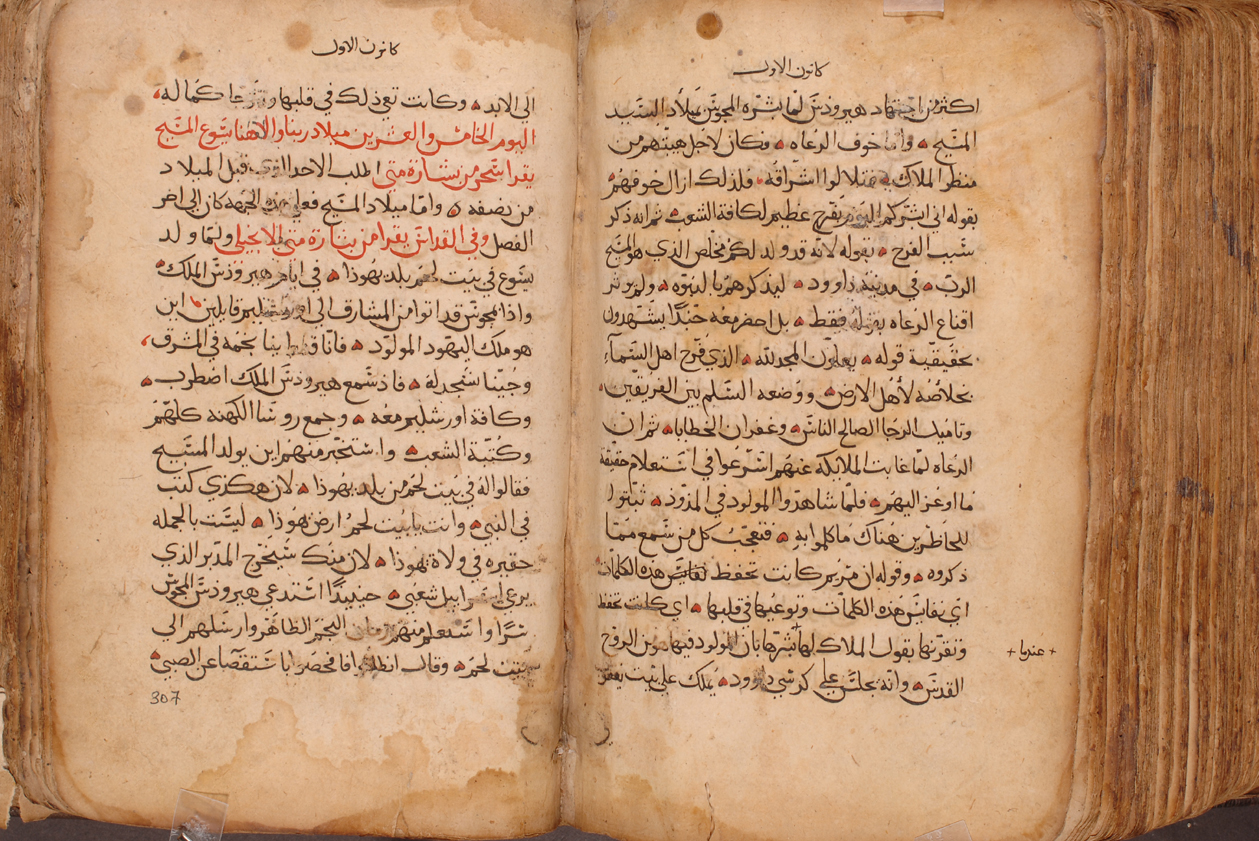 كانون الاول
اكثر من اجتهاد هيروذس لما بشره المجوس بميلاد السيد
المسيح واما خوف الرعاه فكان لاجل هيبتهم من
منظر الملاك لوا اشراقه فلذلك ازال خوفهم
بقوله اني ابشركم اليوم بفرح عظيم لكافة الشعب ثم انه ذكر
سبب الفرح بقوله لانه قد ولد لكم مخلص الذي هو المسيح
الرب في مدينة داوود ليذكرهم بالنبوه ولم يوثر
اقناع الرعاه بقوله فقط بل احضر معه جندًا يشهدون
بحقيقية قوله يعلنون المجد لله الذي فرح اهل السمآء
بخلاصه لأهل الارض ووضعه السلم بين الفريقين
وتاميله الرجا الصالح الناس وغفران الخطايا ثم ان
الرعاه لما غابت الملايكه عنهم اسرعوا في استعلام حقيقة
ما اوعز اليهم فلما شاهدوا المولود في المذود ثبتوا
للحاضرين هناك ما كلموا به فتعجب كل من سمع مما
ذكروه وقوله ان مريم كانت تحفظ هذه الكلمات
اي بقايس هذه الكلمات وتوعيها في قلبها اي كانت تحفظ
وتقرنها بقول الملاك لها بشرها بان المولود فيها من الروح
+ عنبرا +
القدس وانه يجلس علي كرسي داوود يملك علي بيت يعقوب
كانون الاول
الي الابد وكانت تعي ذلك في قلبها كماله
اليوم الخامس والعشرين ميلاد ربنا والاهنا يسوع المسيح
يقرا سحر من بشارة متي اطلب الاحد الذي قبل الميلاد
من نصفه واما ميلاد المسيح فعلي هذه الجهه كان الي اخر
الفصل وفي القداس يقرا من بشارة متي الانجيلي ولما ولد
يسوع في بيت لحم بلد يهوذا في ايام هيروذس الملك
واذا مجوس قد اتوا من المشارق الي اورشليم قايلين اين
هو ملك اليهود المولود فانا قد راينا نجمه في المشرق
وجينا لنسجد له فاذ سمع هيروذس الملك اضطرب
وكافة اورشليم معه وجمع روسا الكهنه كلهم
وكتبة الشعب واستخبر منهم اين يولد المسيح
فقالوا له في بيت لحم من بلد يهوذا لان هكذي كتب
في النبي وانت يا بيت لحم ارض يهوذا ليست بالجمله
حقيره في ولاة يهوذا لان منك سيخرج المدبر الذي
يرعي اسراييل شعبي حينيدًا استدعي هيروذس المجوس
سرًا واستعلم منهم زمان النجم الظاهر وارسلهم الي
بيت لحم وقال انطلقوا فافحصوا باستقصا عن الصبي
307